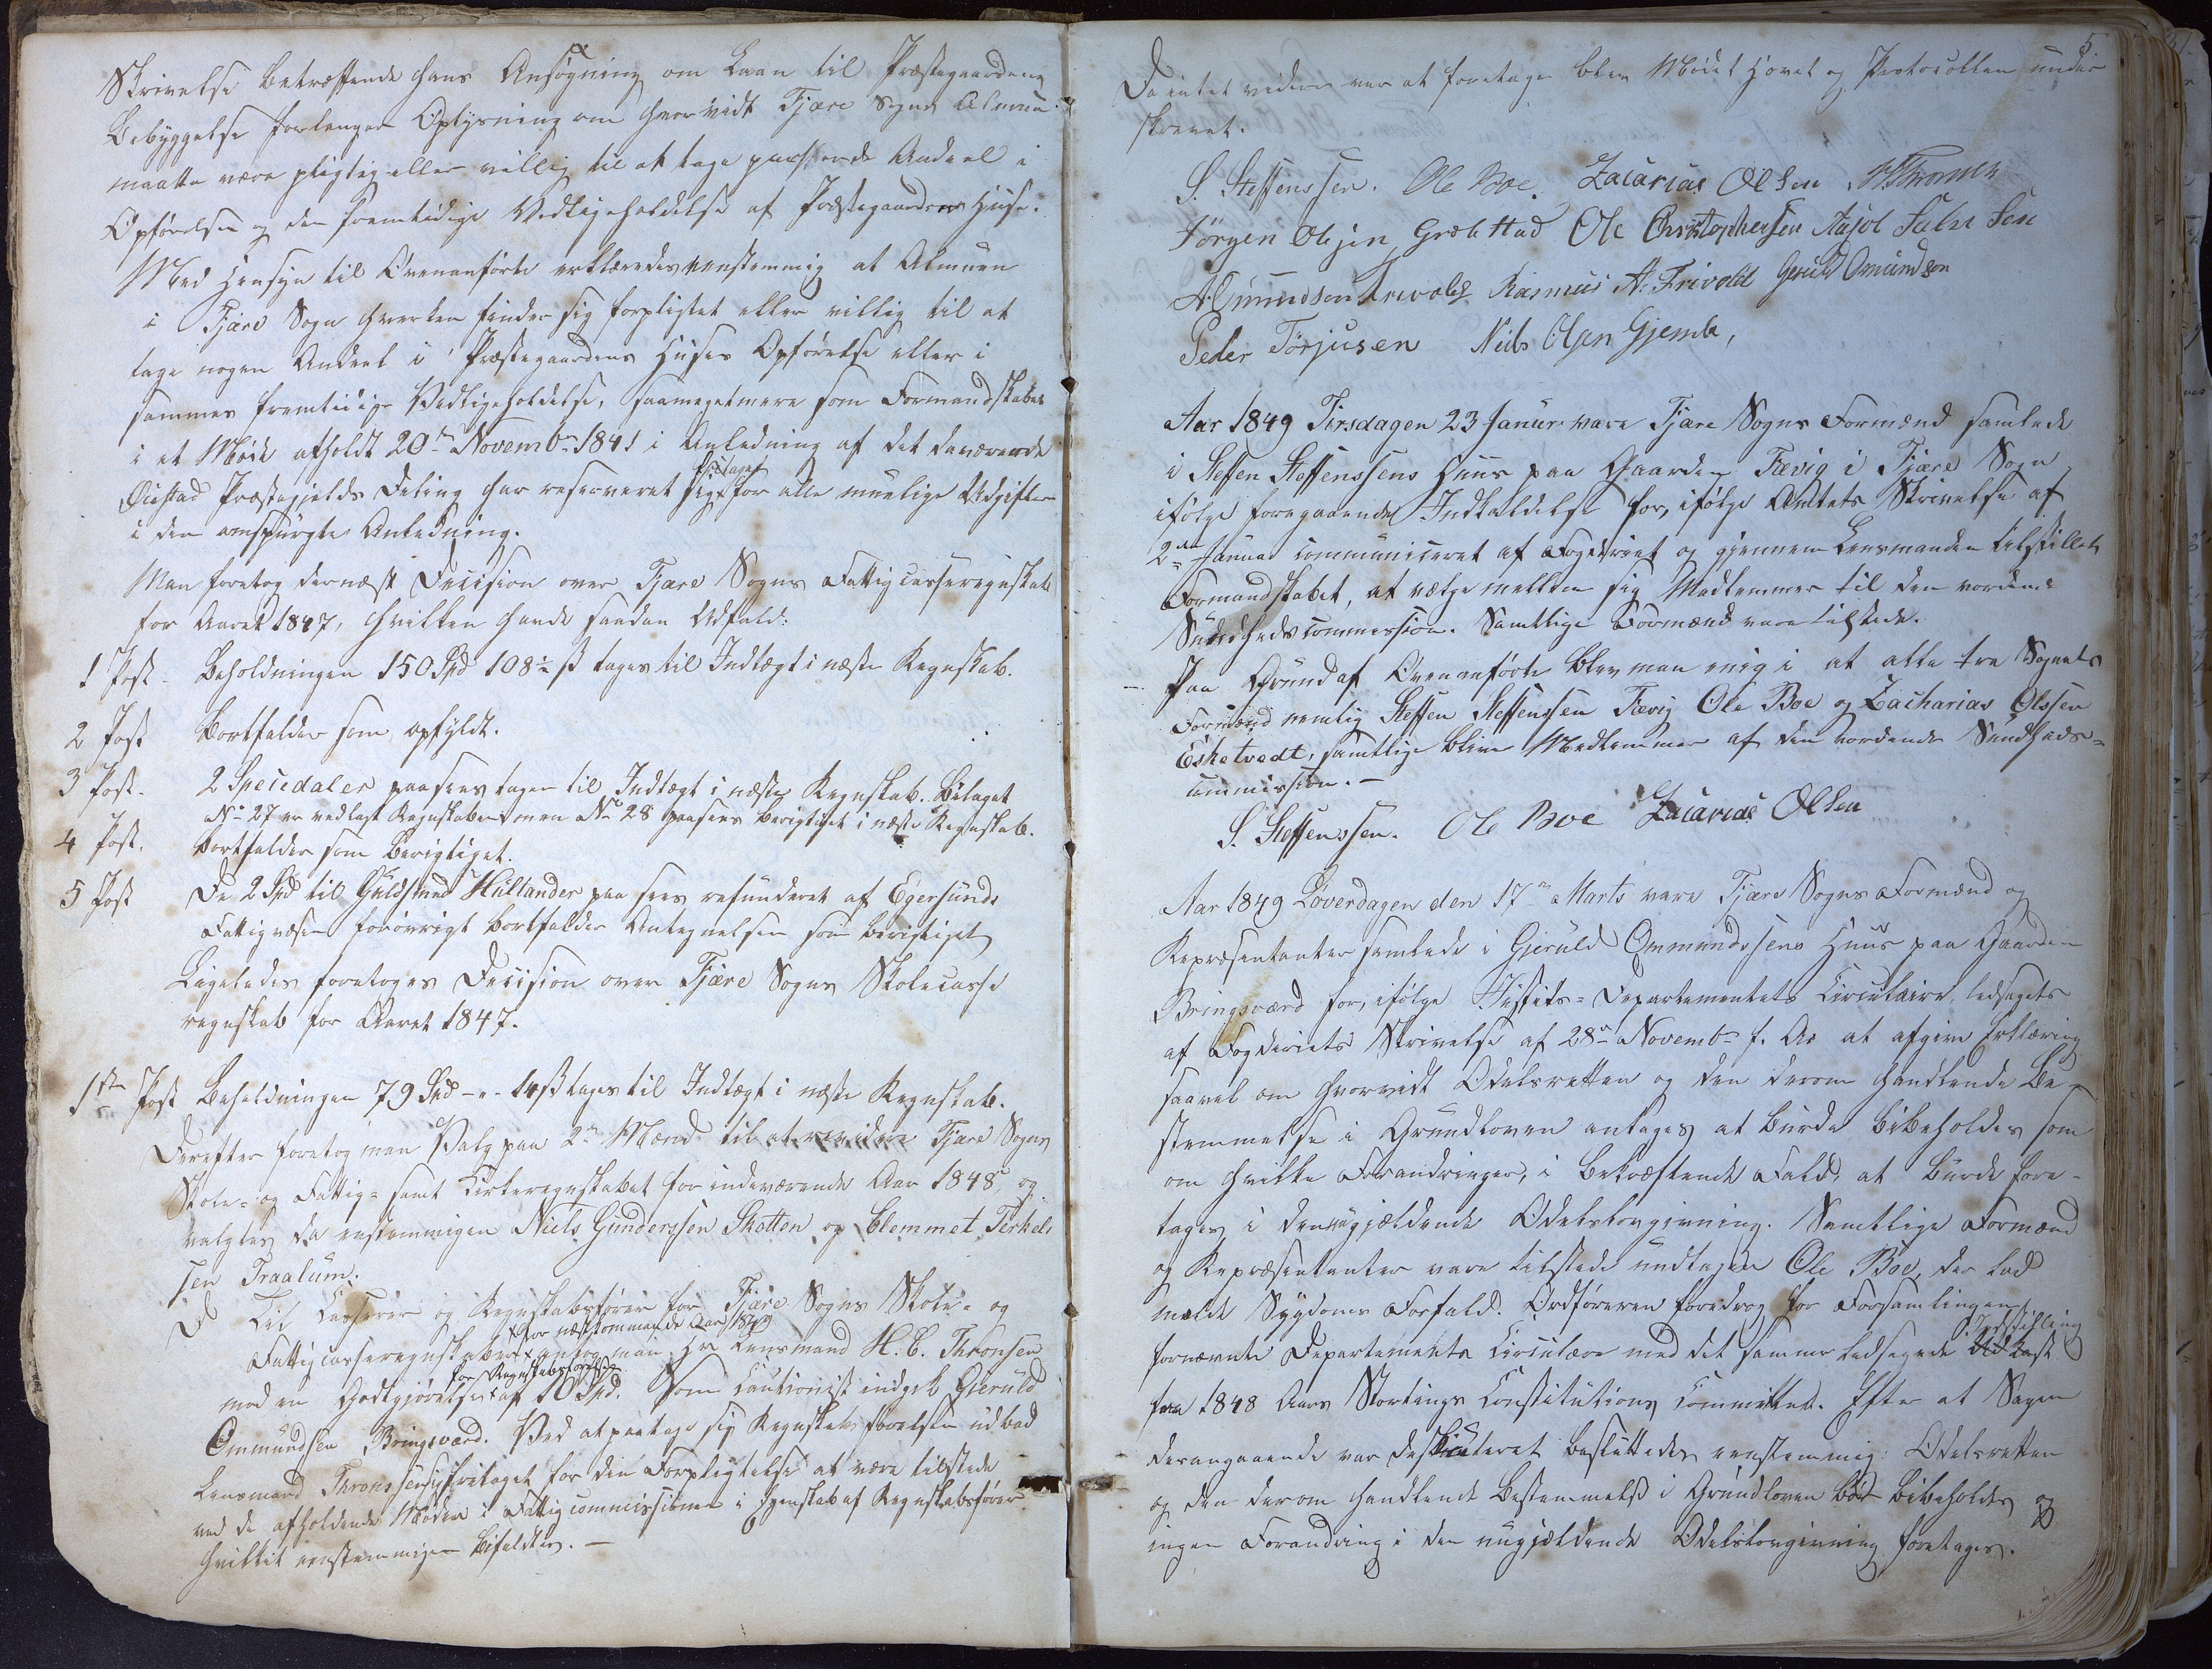 Skrivelse betræffende hans Ansøgning om Laan til Præstegaardens
Bebyggelse forlanger Oplysning om hvorvidt Fjære Sogns Almue
maatte være pligtig eller villig til at tage passende Andeel i
Opførelsen og den fremtidige Vedligeholdelse af Præstegaardens Huse.
Med Hensyn til Ovenanførte erklæredes eenstemmig at Almuen
i Fjære Sogn hverken finder sig forpligtet eller villig til at
tage nogen Andeel i Præstegaardens Huses Opførelse eller i
sammes fremtidige Vedligeholdelse, saameget mere som Formandskabet
i et Møde afholdt 20de Novembr 1841 i Anledning af det daværende
Øiestad Præstegjelds Deling har reserveret sig fritaget for alle muelige Udgifter
i den omspurgte Anledning.
Man foretog dernæst Decision over Fjære Sogns Fattigcasseregnskab
for Aaret 1847, hvilken havde saadan Udfald:
1 Post - Beholdningen 150 Spd 108½ ß tages til Indtægt i næste Regnskab.
2 Post Bortfalder som opfyldt.
3 Post - 2 Speciedaler paasees tagen til Indtægt i næste Regnskab. Bilaget
No 27 er vedlagt Regnskabet men No 28 paasees berigtiget i næste Regnskab.
4 Post. Bortfalder som berigtiget.
5 Post De 2 Spd til Guldsmed Hullander paasees refunderet af Egersunds
Fattigvæsen forøvrigt bortfalder Antegnelsen som berigtiget
Ligeledes foretoges Decision over Fjære Sogns Skolecasse
regnskab for Aaret 1847.
1ste Post Beholdningen 79 Spd - " - 14 ß tages til Indtægt i næste Regnskab.
Derefter foretog man Valg paa 2de Mænd til at revidere Fjære Sogns
Skole- og Fattig- samt Kirkeregnskabet for indeværende Aar 1848, og
valgtes da eenstemmigen Niels Gunderssen Skotten og Clemmet Terkels
sen Traalum.
Til Casserer og Regnskabsfører for Fjære Sogns Skole- og
Fattigcasseregnskaber for næstkommende Aar 1849 antog man Hr Lensmand H. C. Thronsen
mod en Godtgjørelse for Regnskabsførelsen af 10 Spd. Som Cautionist indgik Gjeruld
Ommundsen Bringsværd. Ved at paatage sig Regnskabsførelsen udbad
Lensmand Thronssen sig fritaget for den Forpligtelse at være tilstede
ved de afholdende Møder i Fattigcommissionen i Egenskab af Regnskabsfører
hvilket eenstemmigen bifaldtes. -
5
Da intet videre var at foretage blev Mødet hævet og Protocollen under
skrevet.
S. Steffenssen. Ole Boe. Zacarias Olsen. H Thronsen
Jörgen Olsen Grøbstad Ole Christophersen Aasol Salve Sen
A. Omundsen Trevold Rasmus A. Frivold Geruld Omundsen
Peder Törjusen Niels Olsen Gjemle,
Aar 1849 Tirsdagen 23 Januar vare Fjære Sogns Formænd samlede
i Steffen Steffenssens Huus paa Gaarden Fævig i Fjære Sogn
ifølge foregaaende Indkaldelse for, ifølge Amtets Skrivelse af
2den Januar communiceret af Fogderiet og gjennem Lensmanden tilstillet
Formandskabet, at vælge mellem sig Medlemmer til den vordende
Sundhedscommission. Samtlige Formænd vare tilstede.
- Paa Grund af Ovenanførte blev man enig i at alle tre Sognets
Formænd nemlig Steffen Steffenssen Fævig Ole Boe og Zacharias Olssen
Esketvedt, samtlige blive Medlemmer af den vordende Sundheds-
commission. -
S. Steffenssen. Ole Boe Zacarias Olsen
Aar 1849 Löverdagen den 17de Marts vare Fjære Sogns Formænd og
Repræsentanter samlede i Gjeruld Ommundssens Huus paa Gaarden
Bringsværd for, ifølge Justits-Departementets Circulaire, ledsaget
af Fogderiets Skrivelse af 28de Novembr f. A. at afgive Erklæring
saavel om hvorvidt Odelsretten og den derom handlende Be-
stemmelse i Grundloven antages at burde bibeholdes som
om hvilke Forandringer, i bekræftende Fald, at burde fore-
tages i den nugjældende Odelslovgivning. Samtlige Formænd
og Repræsentanter vare tilstede undtagen Ole Boe, der lod
melde Sygdoms Forfald. Ordføreren foredrog for Forsamlingen
fornævnte Departements Circulære med det samme ledsagede Indstilling
fra 1848 Aars Stortings Constitutions Committee. Efter at Sagen
derangaaende var deskuteret besluttedes eenstemmig: Odelsretten
og den derom handlende Bestemmelse i Grundloven bør bibeholdes og
ingen Forandring i den nugjældende Odelslovgivning foretages.